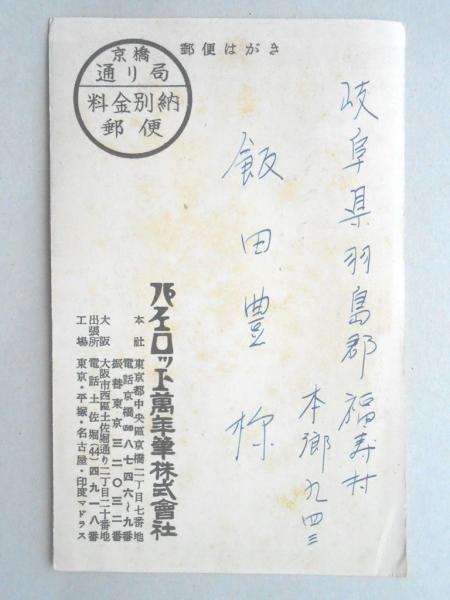 郵便はがき
京橋
通り局
料金別納
郵便
岐阜県羽島郡福寿村
本郷九四三
飯田豊様
パイロット萬年筆株式會社
本社 東京都中央區京橋二丁目七番地
電話京橋(56)八七四六~九番
振替東京三二〇三二番
大阪出張所 大阪市西區土佐堀通り二丁目二十番地
電話土佐堀(44)四九一八番
工場 東京・平塚・名古屋・印度マドラス